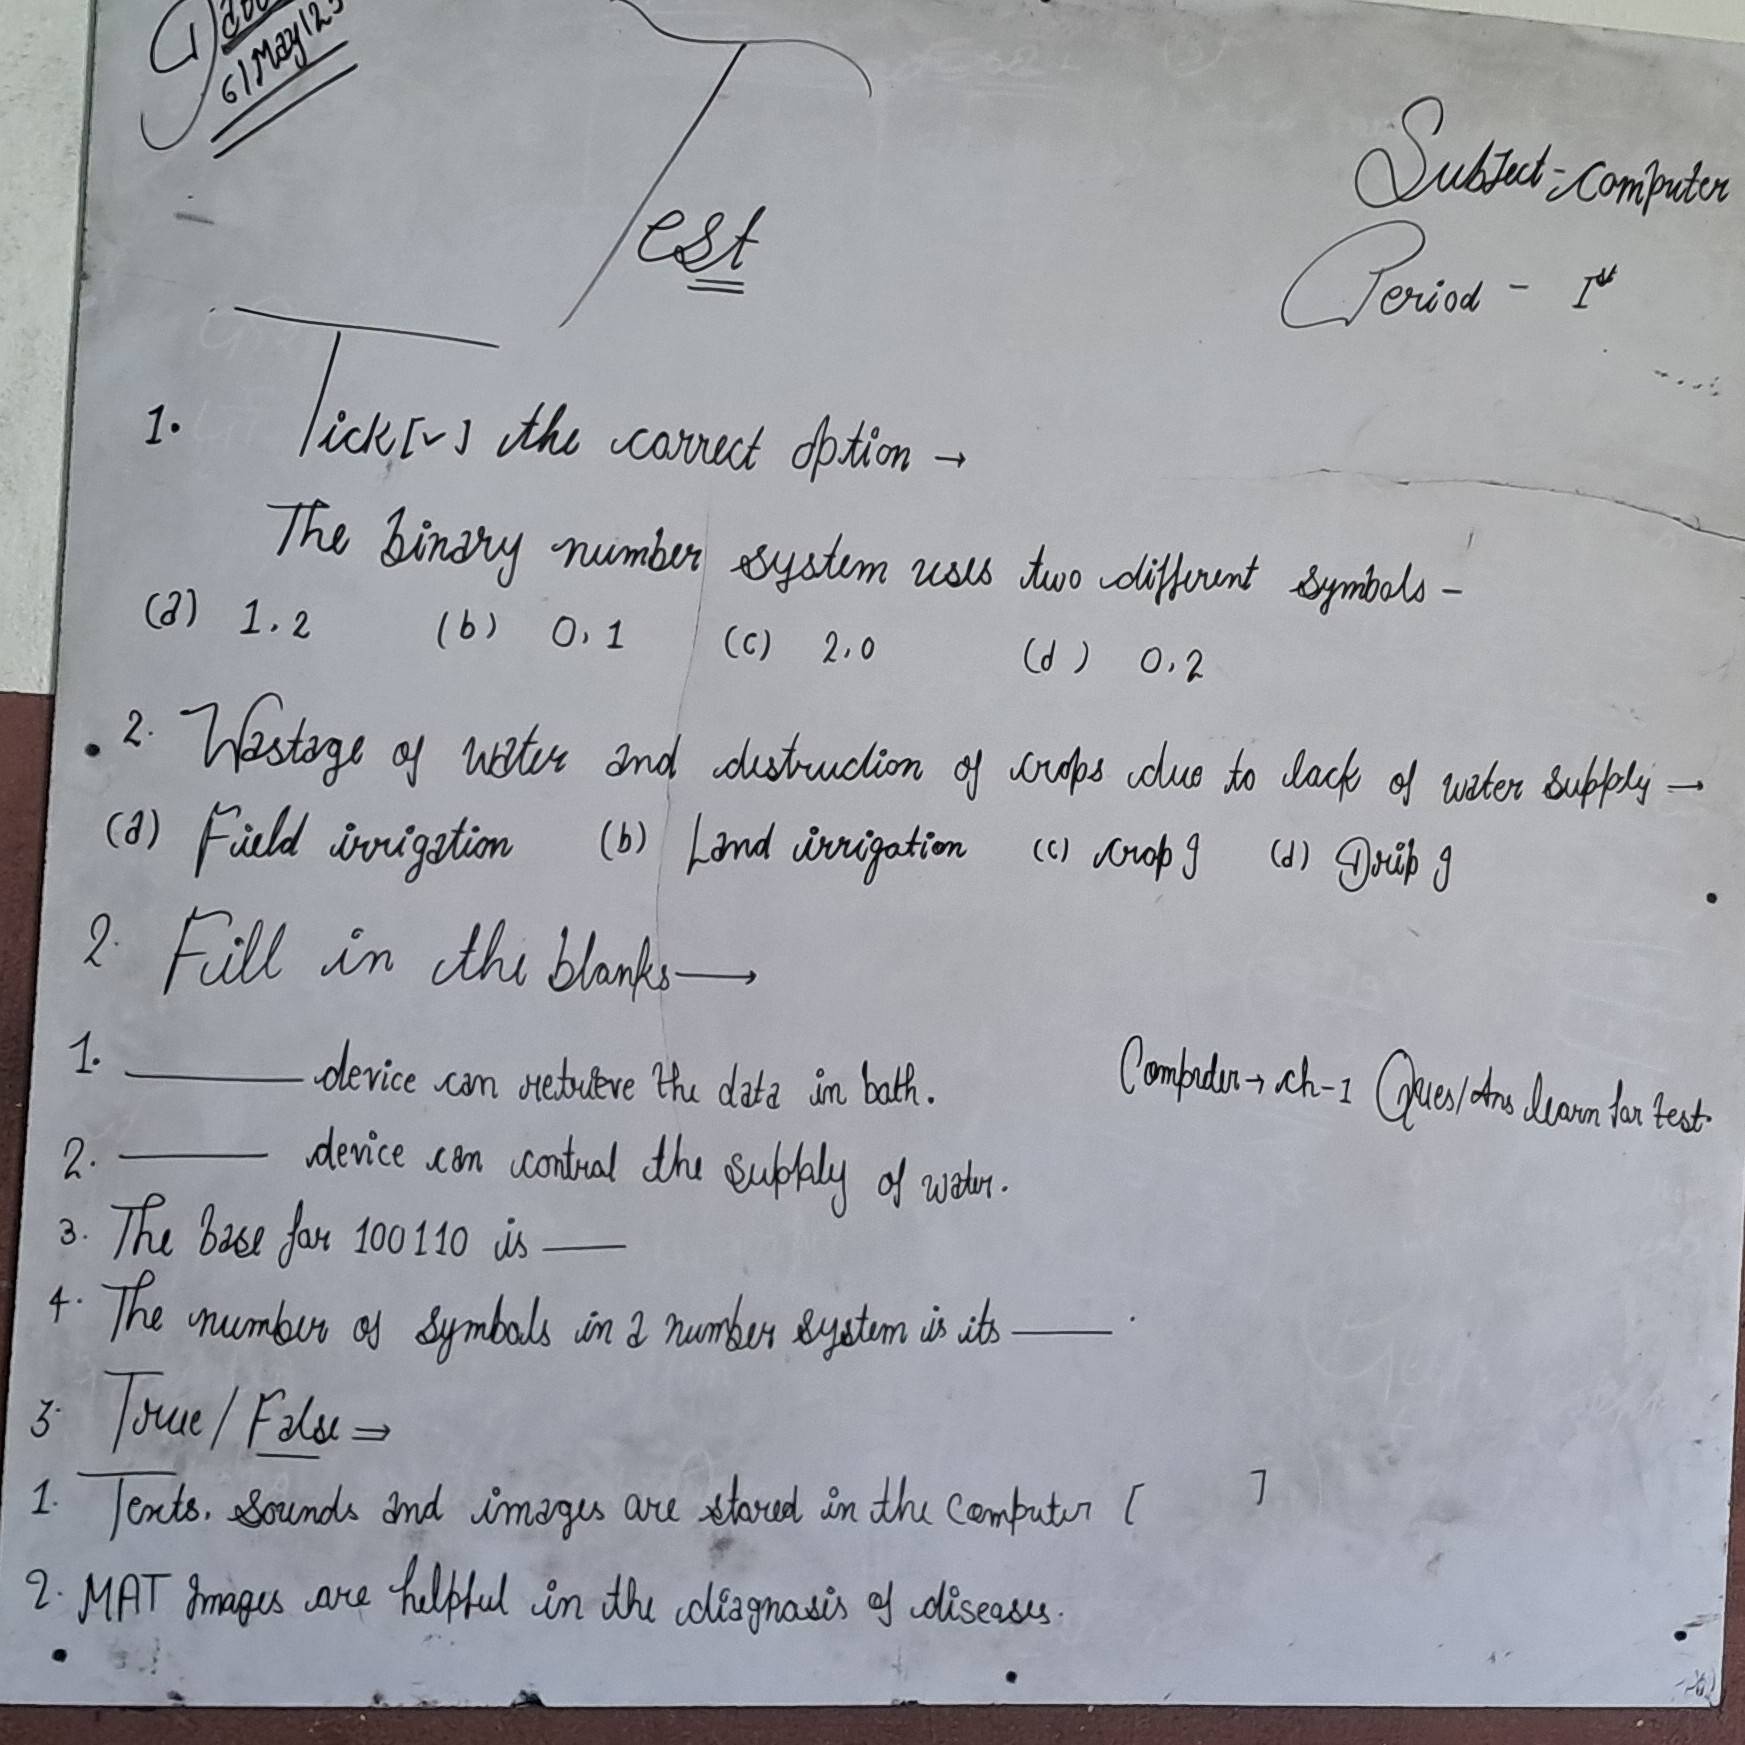 6/May/23
Test
Subject - Computer
Period - Ist
1. Tick [✓] the correct option →
The binary number system uses two different symbols -
(a) 1, 2 (b) 0, 1 (c) 2, 0 (d) 0, 2
2. Wastage of water and destruction of crops due to lack of water supply →
(a) Field irrigation (b) Land irrigation (c) crop g (d) Drip g
2. Fill in the blanks →
1. ______ device can retrieve the data in bath.
Computer → ch-1 Ques/Ans learn for test.
2. ______ device can control the supply of water.
3. The base for 100110 is ____
4. The number of symbols in a number system is its ____.
3. True / False ⇒
1. Texts, sounds and images are stored in the computer [ ]
2. MAT Images are helpful in the diagnosis of diseases.